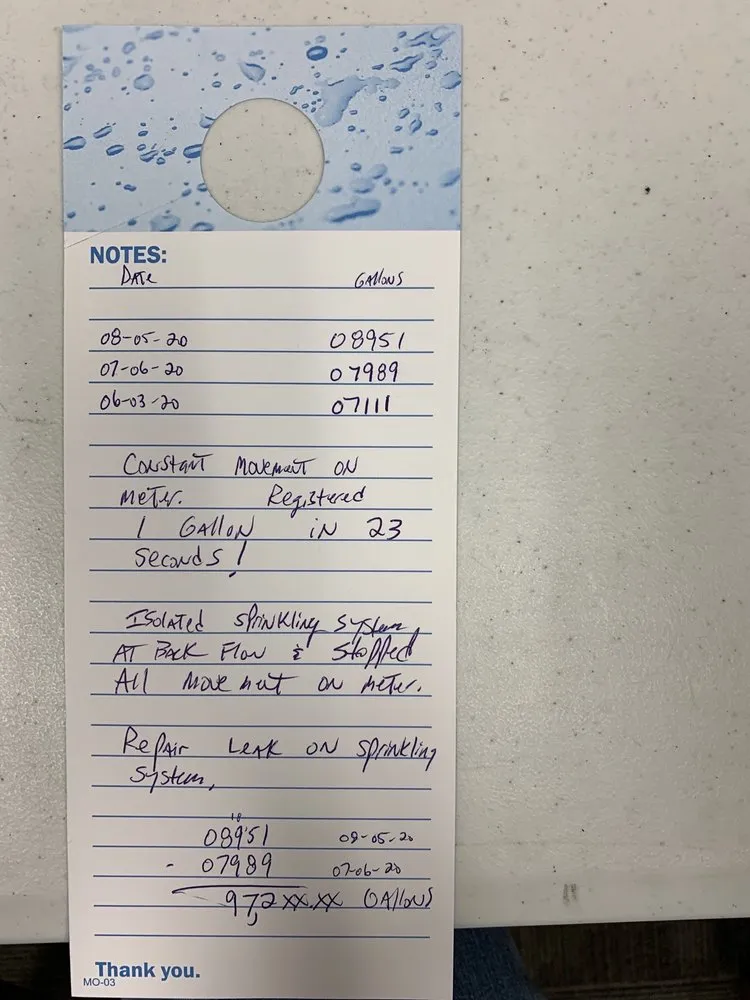 NOTES:
DATE GALLONS
08-05-20 08951
07-06-20 07989
06-03-20 07111
Constant Movement ON
Meter. Registered
1 GALLON iN 23
Seconds!
ISOLATED SPRINKLING SYSTEM
AT BACK FLOW & STOPPED
All MOVEMENT ON METER.
Repair LEAK ON SPRINKLING
SYSTEM.
18
08951 08-05-20
- 07989 07-06-20
97,2XX.XX GALLONS
Thank you.
MO-03